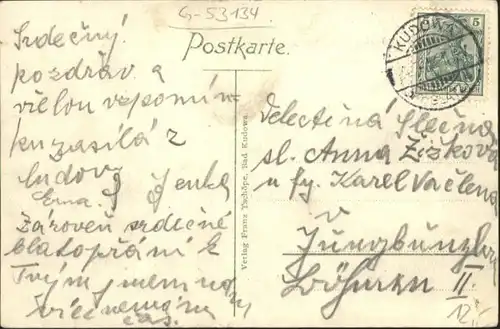 G-53134
Postkarte.
5
KUDOWA
Srdečný
pozdrav a
vřelou vzpomín-
ku zasílá z
Kudovy
Erna. Jenka
Zároveň srdečné
blahopřání k
Tvým jmeninám
více nemám
čas.
Verlag Franz Tschöpe, Bad Kudowa.
Slečna
sl. Anna Žižkova
u fy. Karel Vačlena
v
Jungbunzlau
Böhmen II.
12